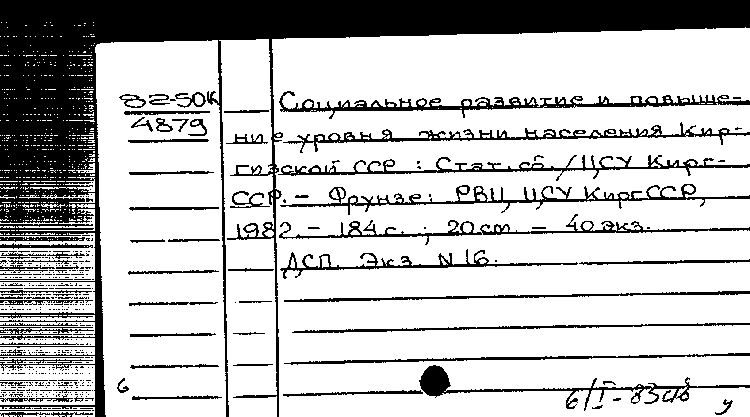 82-50К
4879
Социальное развитие и повыше-
ние уровня жизни населения Кир-
гизской ССР : Стат. сб. / ЦСУ Кирг-
ССР. – Фрунзе: РВЦ ЦСУ КиргССР,
1982. – 184 с. ; 20 см. – 40 экз.
ДСП. Экз. N 16.
6
6/I-83